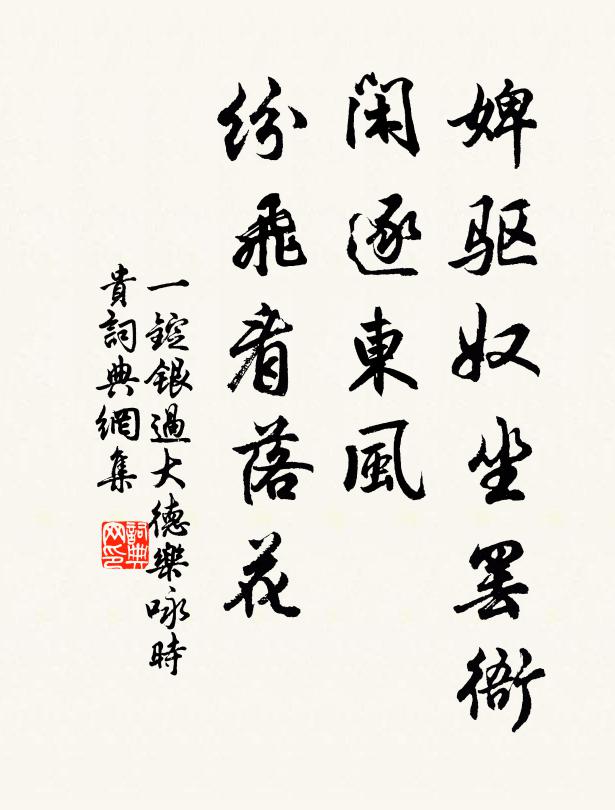 婢驱奴坐罢衙
闲逐東風
纷飛看落花
一錠銀過大德樂咏時
貴詞典網集
詞典网印